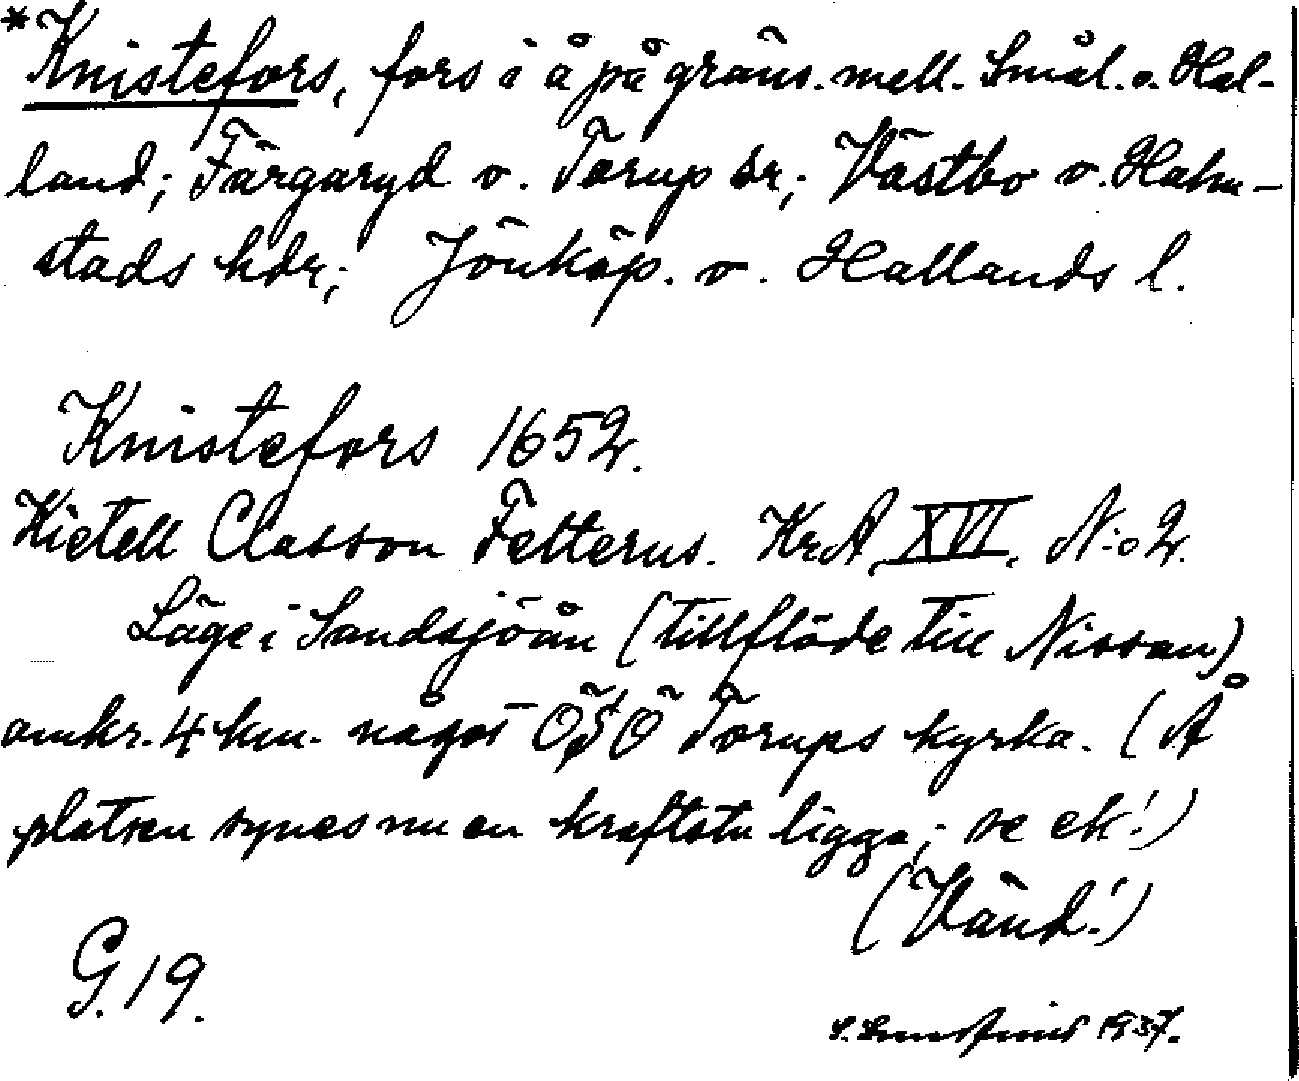 *Knistefors, fors i å på gräns. mell. Smål. o. Hal-
land; Färgaryd o. Torup sr; Västbo o. Halm-
stads hdr; Jönköp. o. Hallands l.
Knistefors 1652.
Kietell Classon Felterus. KrA XVI. N:o 2.
Läge i Sandsjöån (tillflöde till Nissan)
omkr. 4 km. något ÖSÖ Torups kyrka. (Å
platsen synes nu en kraftstn ligga; se ek!)
(Vänd!)
G. 19.
1937.